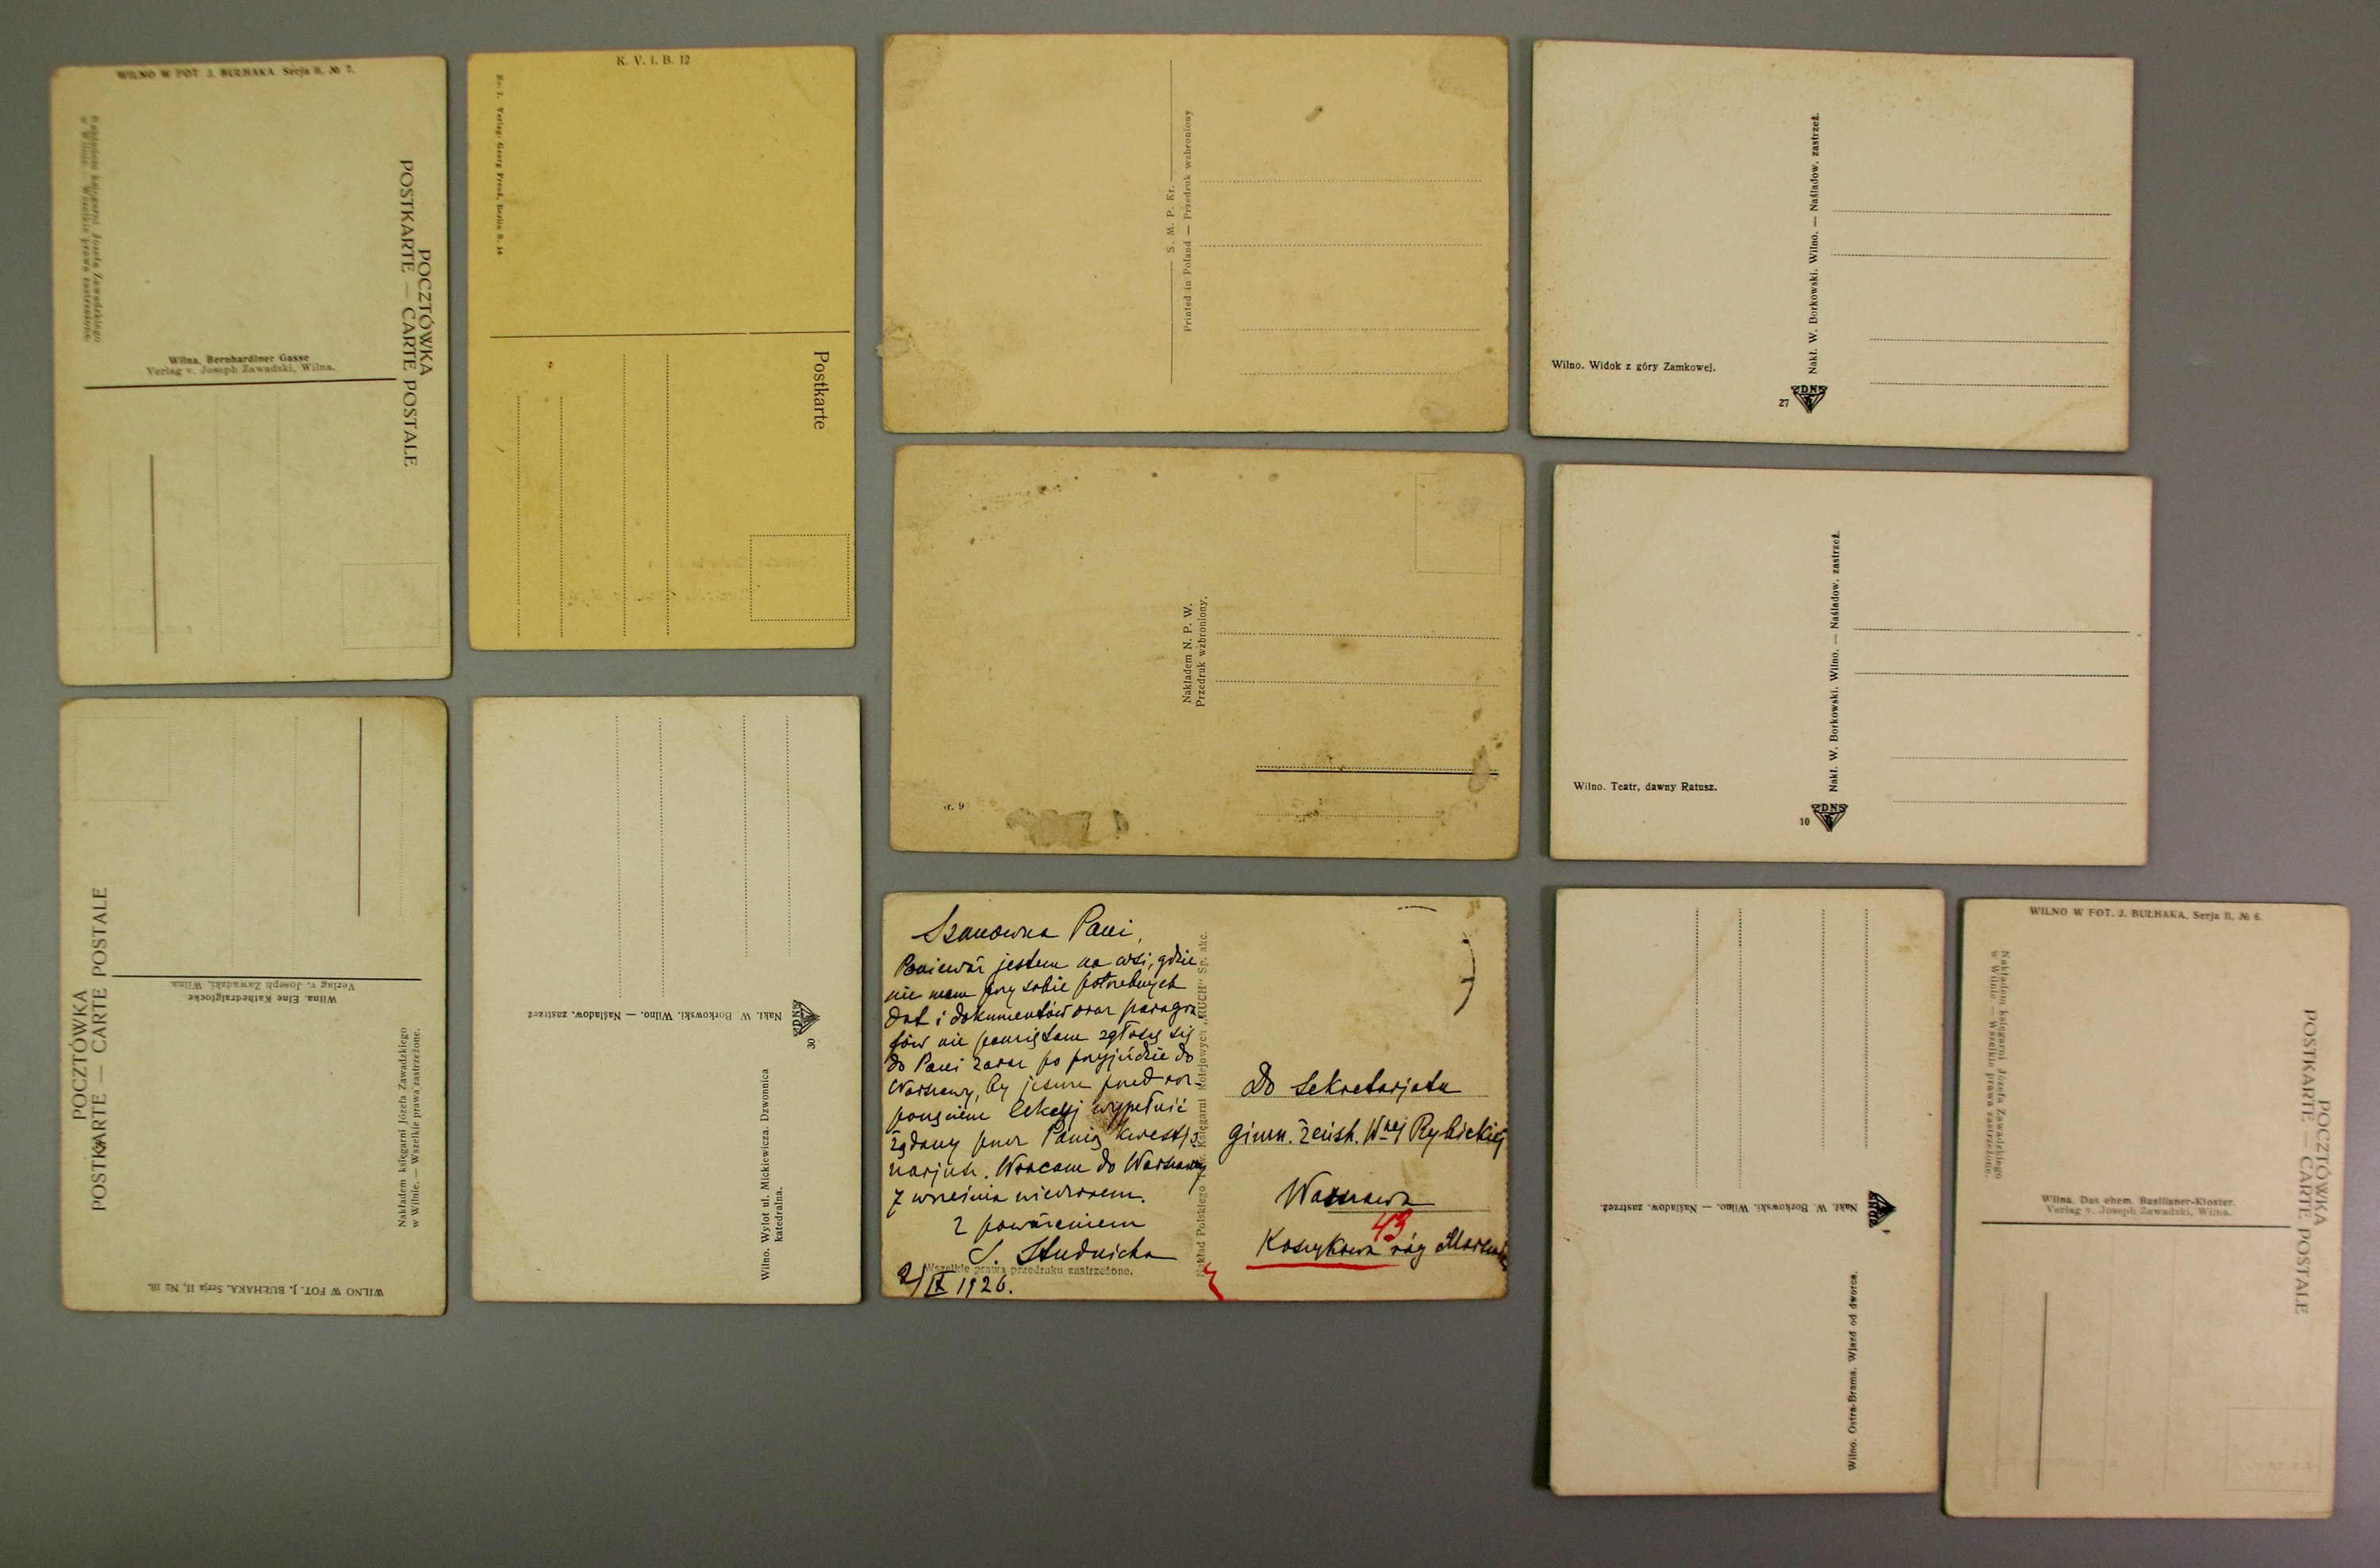 WILNO W FOT. J. BUŁHAKA. Serja II, № 7.
Nakładem księgarni Józefa Zawadzkiego
w Wilnie. — Wszelkie prawa zastrzeżone.
Wilna. Bernhardiner Gasse
Verlag v. Joseph Zawadzki, Wilna.
POCZTÓWKA
POSTKARTE — CARTE POSTALE
K. V. i. B. 12
Verlag: Georg Berlin S. 14
Postkarte
S. M. P. Kr.
Printed in Poland — Przedruk wzbroniony
Wilno. Widok z góry Zamkowej.
Nakł. W. Borkowski. Wilno. — Naśladow. zastrzeż.
27
Nakładem N. P. W.
Przedruk wzbroniony.
r. 9
Wilno. Teatr, dawny Ratusz.
Nakł. W. Borkowski. Wilno. — Naśladow. zastrzeż.
10
POCZTÓWKA
POSTKARTE — CARTE POSTALE
Wilna. Eine Kathedralglocke
Verlag v. Joseph Zawadzki, Wilna.
Nakładem księgarni Józefa Zawadzkiego
w Wilnie. — Wszelkie prawa zastrzeżone.
WILNO W FOT. J. BUŁHAKA. Serja II, № 10.
Nakł. W. Borkowski. Wilno. — Naśladow. zastrzeż
30
Wilno. Wylot ul. Mickiewicza. Dzwonnica
katedralna.
Szanowna Pani,
Ponieważ jestem na wsi, gdzie
nie mam przy sobie potrzebnych
dat i dokumentów oraz paragra
fów nie pamiętam zgłoszę się
do Pani zaraz po przyjeździe do
Warszawy, by jeszcze przed roz
poczęciem lekcyj wypełnić
żądany przez Panią kwestjo
narjusz. Wracam do Warszawy
7 września wieczorem.
Z poważaniem
S. Studnicka
2/IX 1926.
Wszelkie prawa przedruku zastrzeżone.
Nakład Polskiego Tow. Księgarni Kolejowych „RUCH“ Sp. akc.
Do Sekretarjatu
Gimn. Żeńsk. Wnej Rybickiej
Warszawa
43
Koszykowa róg
Nakł. W. Borkowski. Wilno. — Naśladow. zastrzeż.
Wilno. Ostra-Brama. Wjazd od dworca.
WILNO W FOT. J. BUŁHAKA. Serja II, № 6.
Nakładem księgarni Józefa Zawadzkiego
w Wilnie. — Wszelkie prawa zastrzeżone.
Wilna. Das ehem. Basilianer-Kloster.
Verlag v. Joseph Zawadzki, Wilna.
POCZTÓWKA
POSTKARTE — CARTE POSTALE